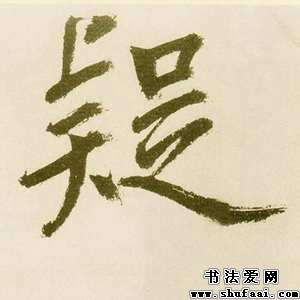 疑
书法爱网
www.shufaai.com